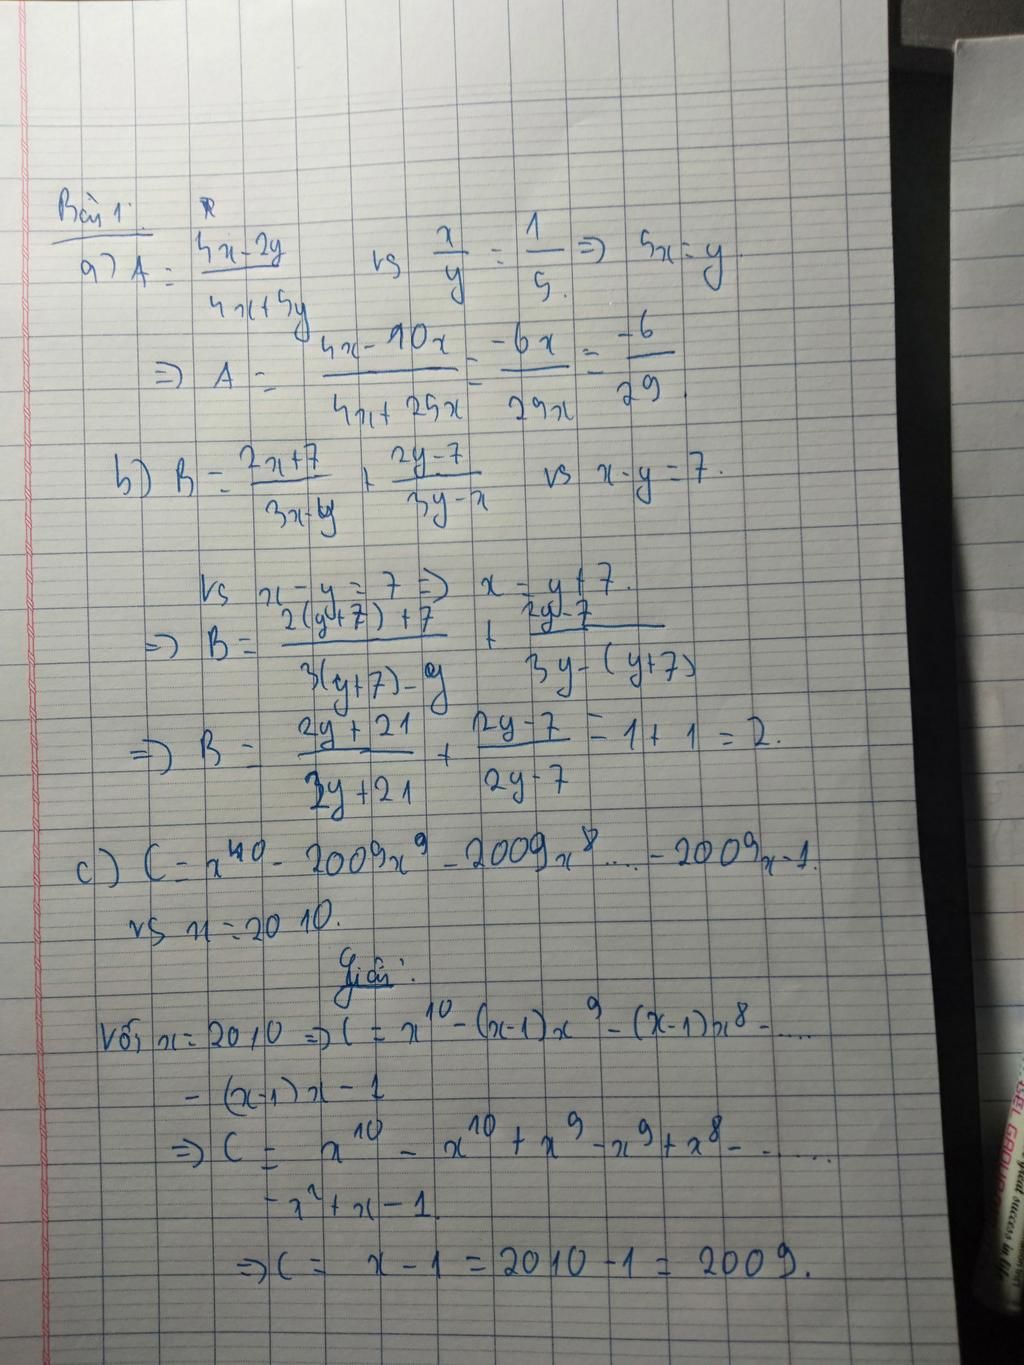 Bài 1:
a) A = \frac{4x-2y}{4x+5y} vs \frac{x}{y} = \frac{1}{5}. => 5x = y
=> A = \frac{4x-10x}{4x+25x} = \frac{-6x}{29x} = \frac{-6}{29}
b) B = \frac{2x+7}{3x-y} + \frac{2y-7}{3y-x} vs x-y = 7.
vs x-y = 7 => x = y+7.
=> B = \frac{2(y+7)+7}{3(y+7)-y} + \frac{2y-7}{3y-(y+7)}
=> B = \frac{2y+21}{2y+21} + \frac{2y-7}{2y-7} = 1+1 = 2.
c) C = x^{10} - 2009x^9 - 2009x^8 .... - 2009x-1.
vs x = 2010.
Giải:
Với x = 2010 => C = x^{10} - (x-1)x^9 - (x-1)x^8 - ....
- (x-1)x - 1
=> C = x^{10} - x^{10} + x^9 - x^9 + x^8 - .....
-x^2 + x - 1.
=> C = x - 1 = 2010 - 1 = 2009.